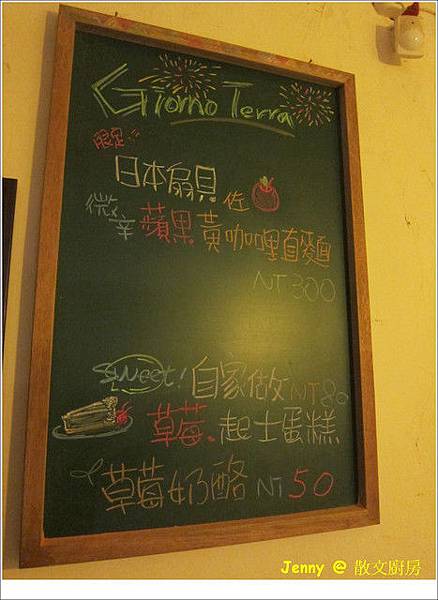 Giorno Terra
限定
日本扇貝佐
微辛蘋果黃咖哩直麵
NT300
sweet! 自家做 NT80
草莓.起士蛋糕
草莓奶酪 NT 50
Jenny @ 散文廚房